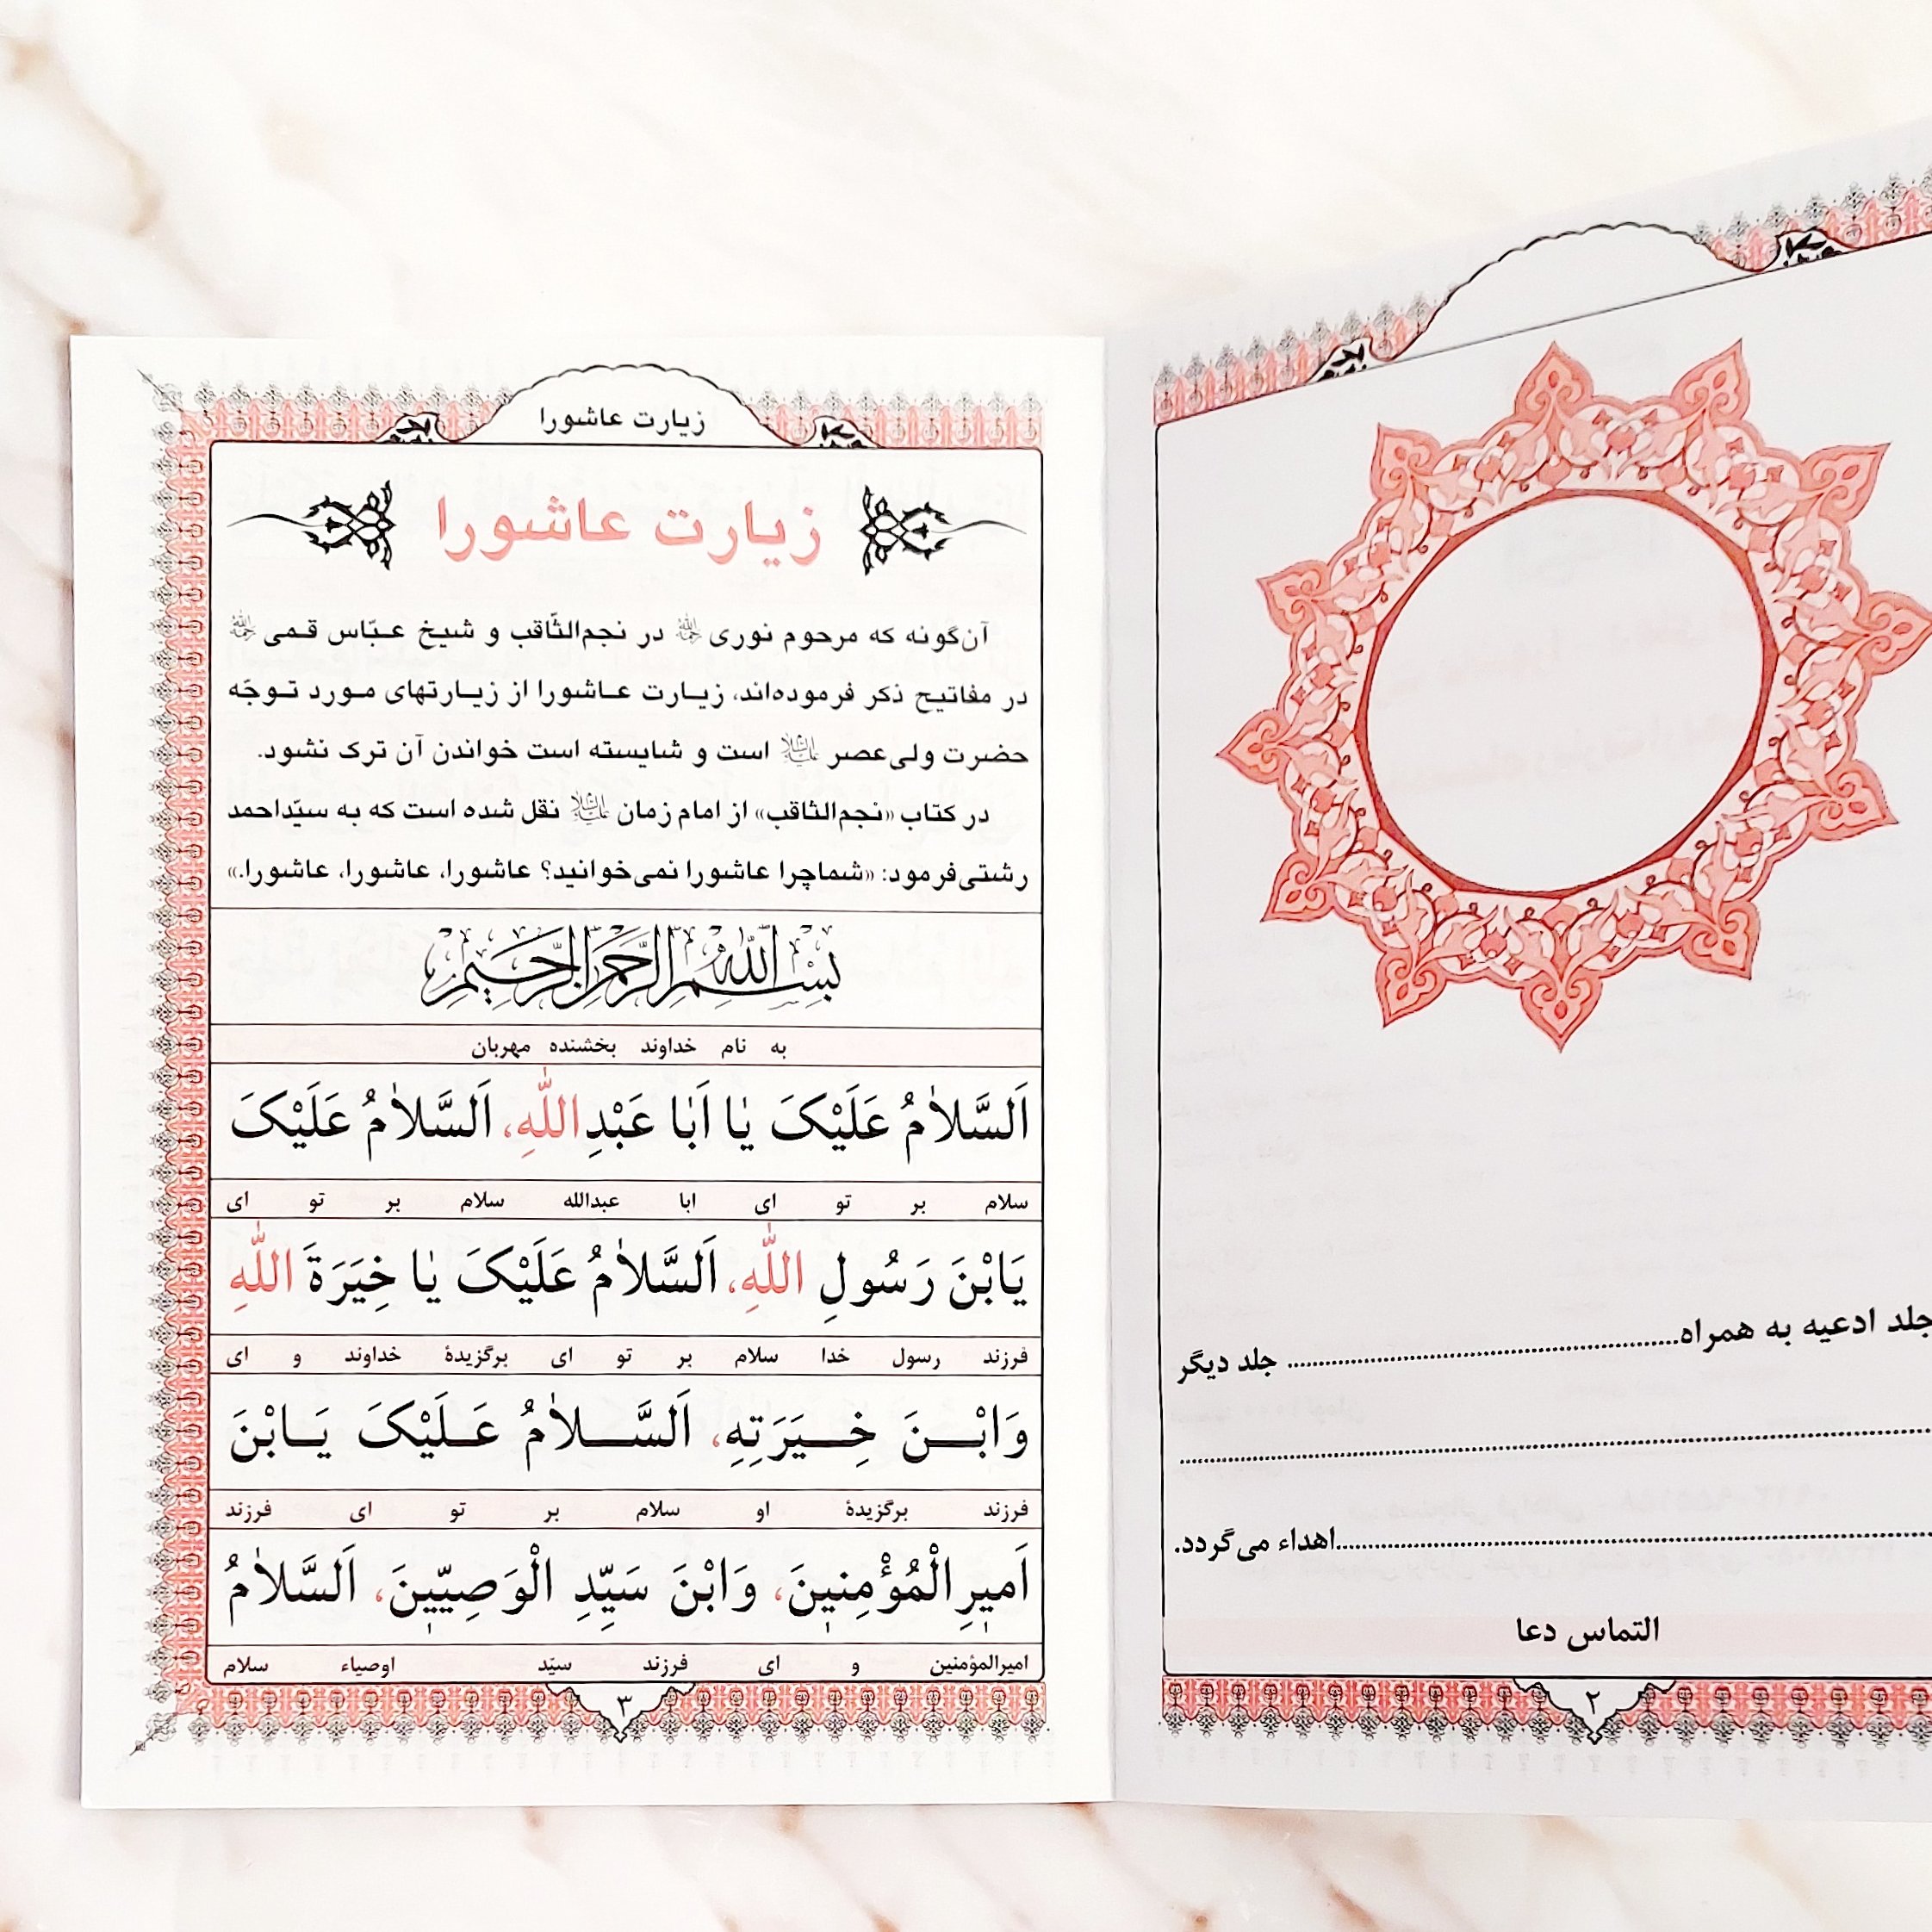 جلد ادعیه به همراه........................ جلد دیگر
........................
........................اهداء می‌گردد.
التماس دعا
۲
زیارت عاشورا
زیارت عاشورا
آن‌گونه که مرحوم نوری رحمه‌الله در نجم‌الثّاقب و شیخ عبّاس قمی رحمه‌الله
در مفاتیح ذکر فرموده‌اند، زیارت عاشورا از زیارتهای مورد توجّه
حضرت ولی‌عصر علیه‌السلام است و شایسته است خواندن آن ترک نشود.
در کتاب «نجم‌الثاقب» از امام زمان علیه‌السلام نقل شده است که به سیّداحمد
رشتی‌فرمود: «شماچرا عاشورا نمی‌خوانید؟ عاشورا، عاشورا، عاشورا.»
بسم الله الرحمن الرحیم
به نام خداوند بخشنده مهربان
اَلسَّلاٰمُ عَلَیْکَ یٰا اَبٰا عَبْدِاللّٰهِ، اَلسَّلاٰمُ عَلَیْکَ
سلام بر تو ای ابا عبدالله سلام بر تو ای
یَابْنَ رَسُولِ اللّٰهِ، اَلسَّلاٰمُ عَلَیْکَ یٰا خِیَرَةَ اللّٰهِ
فرزند رسول خدا سلام بر تو ای برگزیدهٔ خداوند و ای
وَابْنَ خِیَرَتِهِ، اَلسَّلاٰمُ عَلَیْکَ یَابْنَ
فرزند برگزیدهٔ او سلام بر تو ای فرزند
اَمیٖرِالْمُؤْمِنیٖنَ، وَابْنَ سَیِّدِ الْوَصِیّیٖنَ، اَلسَّلاٰمُ
امیرالمؤمنین و ای فرزند سیّد اوصیاء سلام
۳